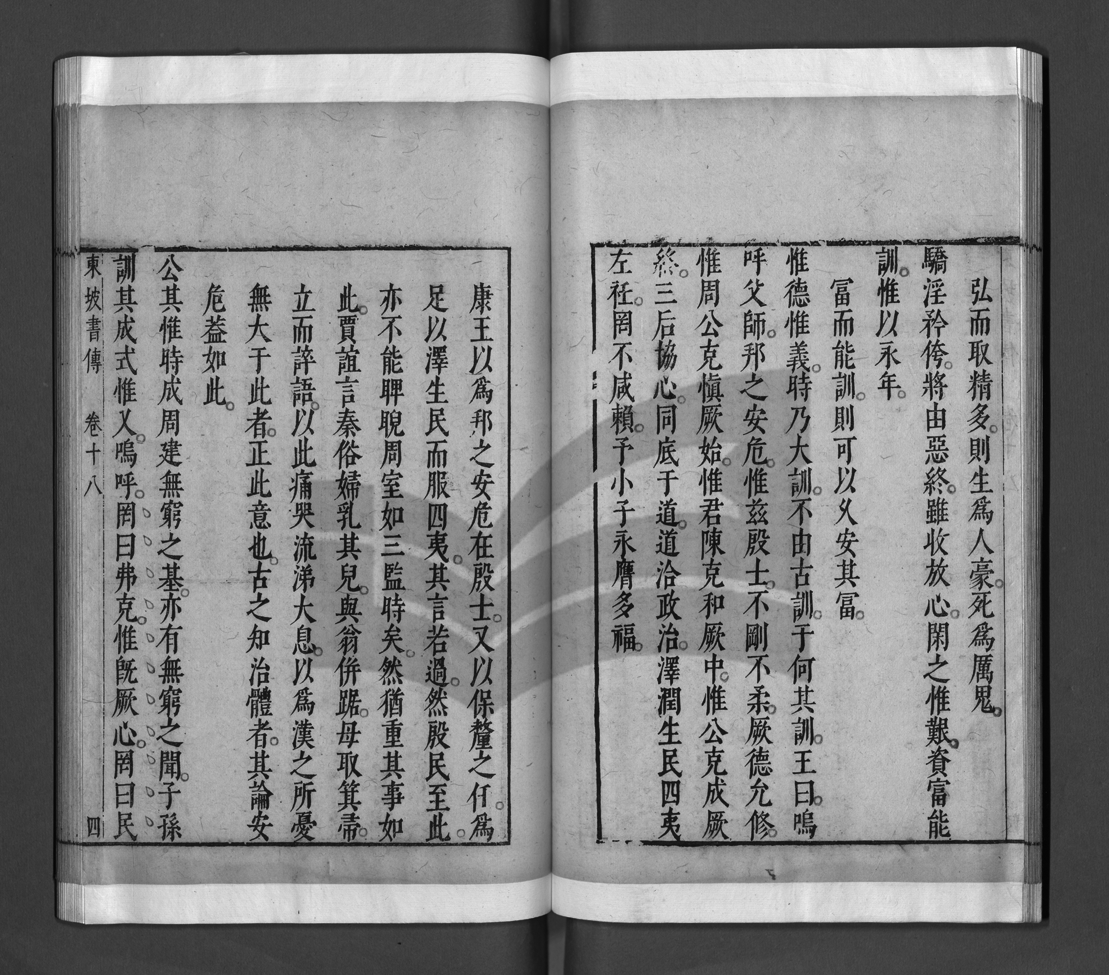 弘而取精多。則生爲人豪。死爲厲鬼。
驕淫矜侉。將由惡終。雖收放心。閑之惟艱。資富能
訓。惟以永年。
冨而能訓。則可以乆安其冨。
惟德惟義。時乃大訓。不由古訓。于何其訓。王曰。嗚
呼父師。邦之安危。惟兹殷士。不剛不柔。厥德允修。
惟周公克愼厥始。惟君陳克和厥中。惟公克成厥
終。三后協心。同底于道。道洽政治。澤潤生民。四夷
左衽。罔不咸賴。予小子永膺多福。
康王以爲邦之安危在殷士。又以保釐之任。爲
足以澤生民而服四夷。其言若過。然殷民至此。
亦不能睥睨周室如三監時矣。然猶重其事如
此。賈誼言秦俗婦乳其兒。與翁併踞。母取箕帚。
立而誶語。以此痛哭流涕大息。以爲漢之所憂
無大于此者。正此意也。古之知治體者。其論安
危葢如此。
公其惟時成周建無窮之基。亦有無窮之聞。子孫
訓其成式惟乂。嗚呼。罔曰弗克。惟旣厥心。罔曰民
東坡書傳 卷十八 四